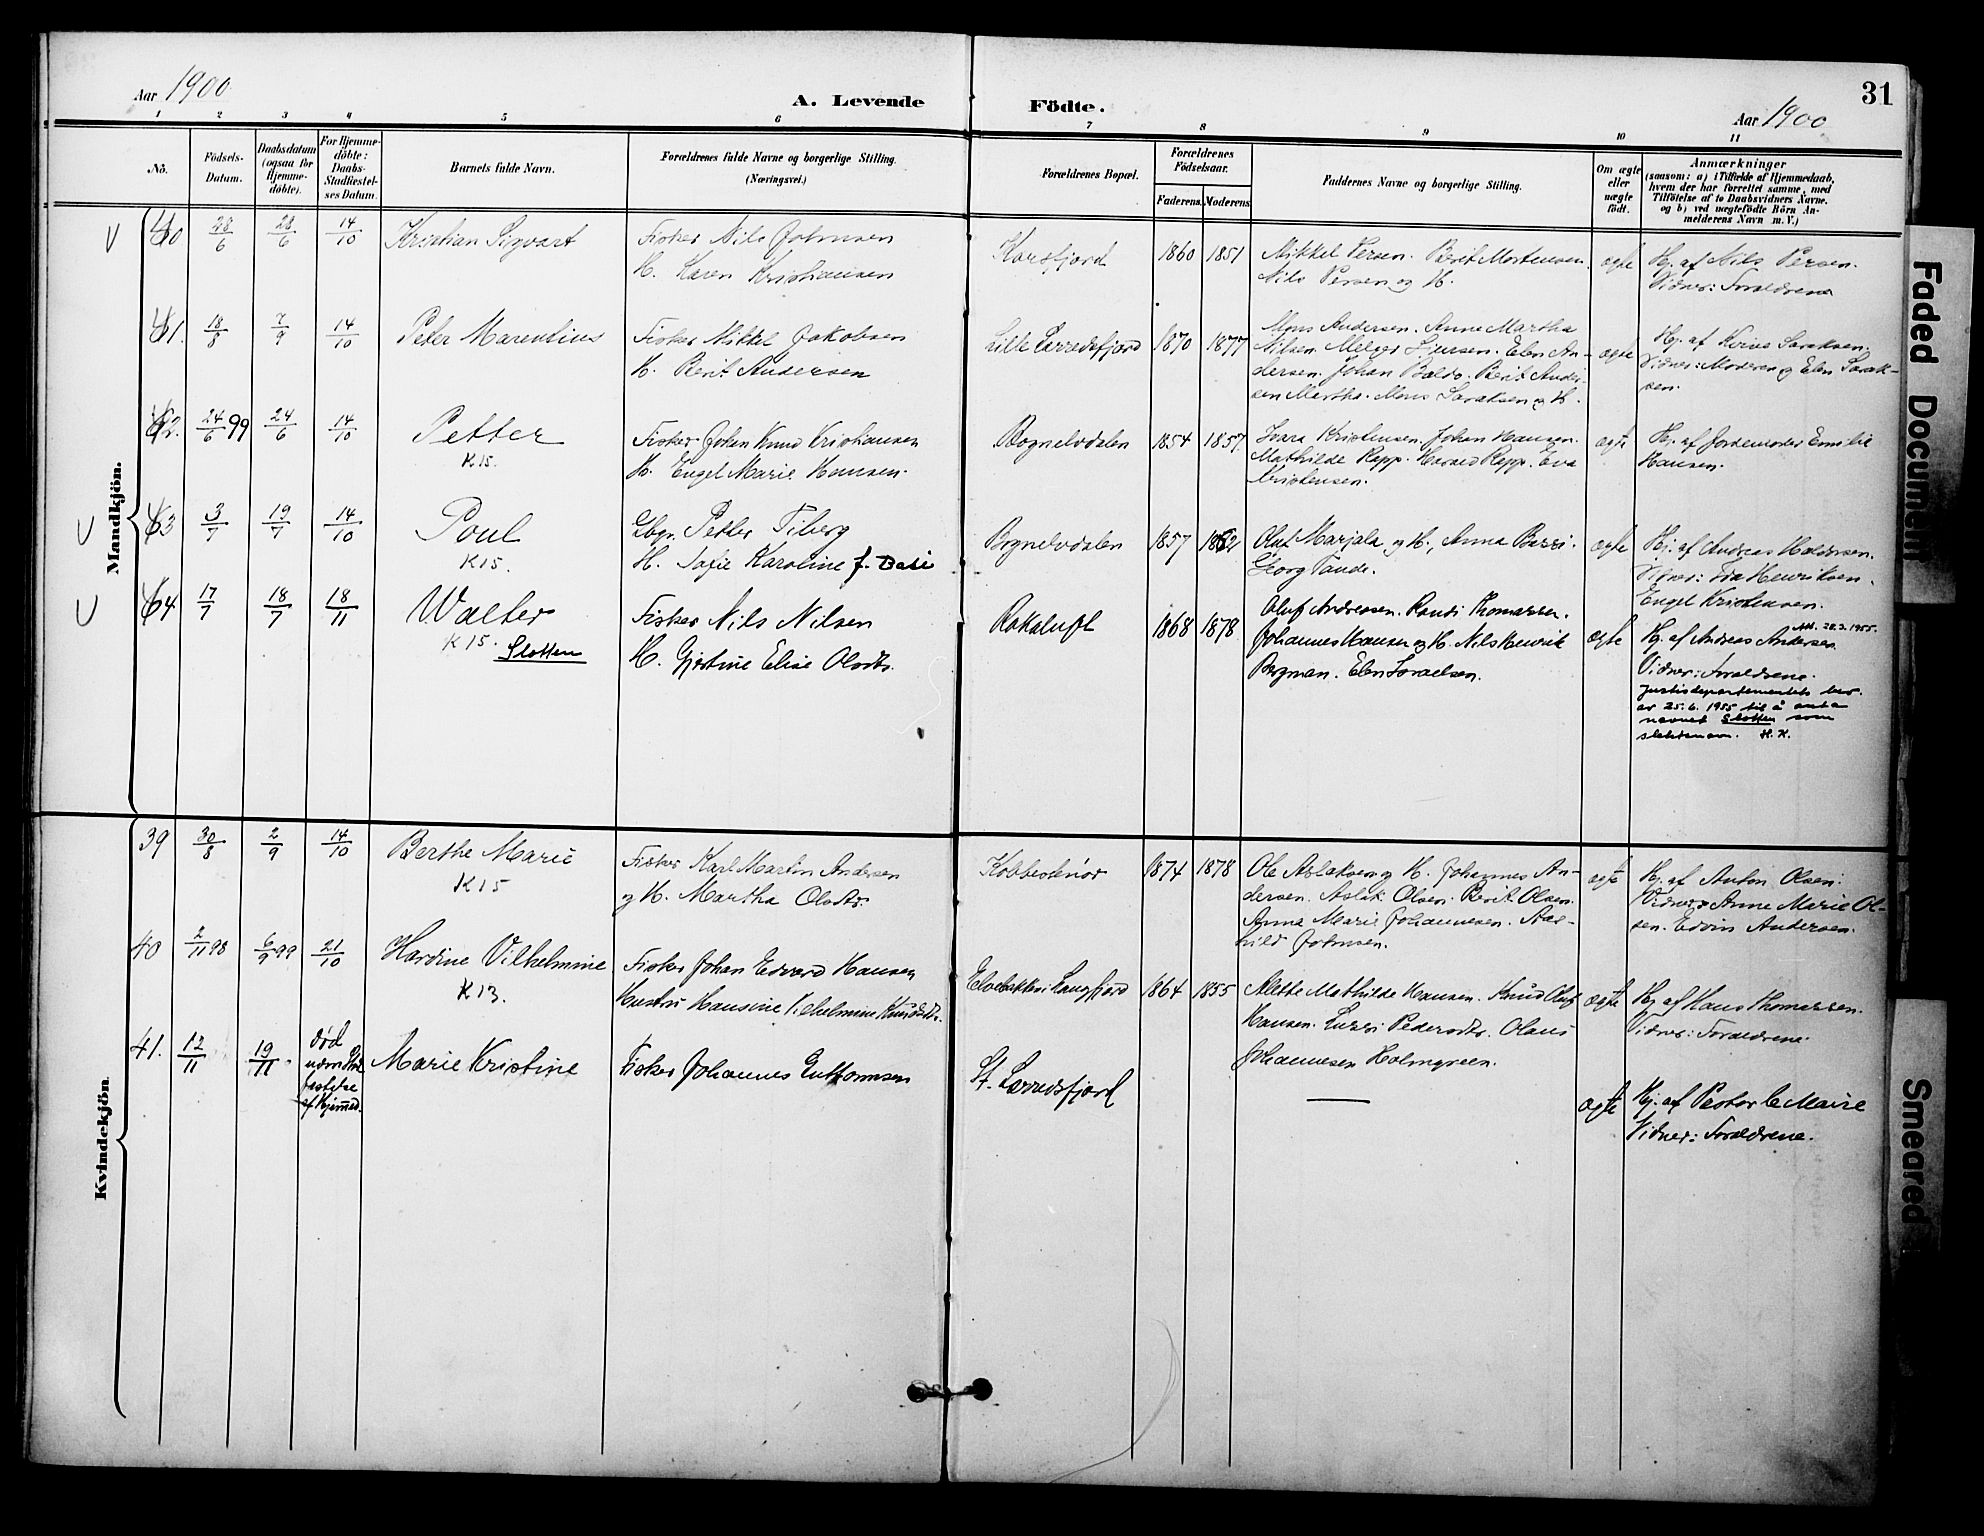 Aar 1900
A. Levende Födte.
31
Aar 1900
1 2 3 4 5 6 7 8 9 10 11
No.
Födsels-
Datum.
Daabsdatum
(ogsaa for
Hjemme-
döbte).
For Hjemme-
döbte:
Daabs-
Stadfæstel-
ses Datum.
Barnets fulde Navn.
Forældrenes fulde Navne og borgerlige Stilling.
(Næringsvei.)
Forældrenes Bopæl.
Forældrenes
Födselsaar.
Faderens. Moderens.
Faddernes Navne og borgerlige Stilling.
Om ægte
eller
uægte
födt.
Anmærkninger
(saasom: a) i Tilfælde af Hjemmedaab,
hvem der har forrettet samme, med
Tilföielse af to Daabsvidners Navne.
og b) ved uægtefödte Börn An-
melderens Navn m. V.)
Mandkjön.
60 28/6 28/6 14/10 Kristian Sigvart
Fisker Nils Johnsen
H. Karen Kristiansen
Korsfjord 1860 1851
Mikkel Persen. Berit Mortensen.
Nils Persen og H.
ægte
Hj. af Nils Persen.
Vidner: Forældrene
61. 18/8 7/9 14/10 Peter Marentius
Fisker Mikkel Jakobsen
H. Berit Andersen
Lille Lerredsfjord 1870 1877
Mons Andersen. Anne Martha
Nilsen. Elen An-
dersen. Johan Berit Ander-
sen Martha. Mons Isaksen og H.
ægte
Hj. af
Vidner: Moderen og Elen
sen.
62. 24/6 99 24/6 14/10 Petter
K 15.
Fisker Johan Knud Kristiansen
H. Engel Marie Hansen.
Bognelvdalen 1854 1857
Ivara Kristensen. Johan Hansen.
Mathilde Rapp. Harald Rapp. Eva
Kristensen.
ægte
Hj. af Jordemoder Emilie
Hansen.
63 3/7 19/7 14/10 Poul
K 15.
Gbgr. Petter Tiberg
H. Sofie Karoline f. Basi
Bognelvdalen 1857 1862
Oluf Marjala og H., Anna Bassi.
Georg Tande.
ægte
Hj. af Andreas
Vidner: Ida Henriksen.
Engel Kristensen.
64 17/7 18/7 18/11 Walter
K 15. Slotten
Fisker Nils Nilsen
H. Gjertine Elise Olsdtr.
Rakaluft 1868 1878
Oluf Andreasen. Randi Thomassen.
Johannes Hansen og H. Nils Henrik
Bergman. Elen Israelsen.
ægte
Att. 28.3.1955.
Hj. af Andreas Andersen
Vidner: Forældrene.
Justisdepartementets bev.
av 25.6.1955 til å anta
navnet Slotten som
slektsnavn. H. K.
Kvindekjön.
39 30/8 2/9 14/10 Berthe Marie
K 15
Fisker Karl Martin Andersen
og H. Martha Olsdtr.
Kobbestenør 1874 1878
Ole Aslaksen og H. Johannes An-
dersen. Aslak Olsen. Berit Olsen.
Anna Marie Johannesen. Aas-
hild Johnsen.
ægte
Hj. af Anton Olsen.
Vidner: Anne Marie Ol-
sen. Edvin Andersen.
40 2/11 98 6/9 99 21/10 Hardine Vilhelmine
K 13.
Fisker Johan Edvard Hansen
Hustru Hansine Vilhelmine Knudsdtr.
Elvebakken i Langfjord 1864 1855
Alette Mathilde Hansen. Knud Oluf
Hansen. Lussi Pedersdtr. Olaus
Johannesen Holmgreen.
ægte
Hj. af Hans Thomassen.
Vidner: Forældrene.
41. 12/11 19/11 død
uden Stad-
fæstelse
af Hjemmed.
Marie Kristine
Fisker Johannes Guttormsen
St. Lerredsfjord
ægte
Hj. af Pastor le Maire
Vidner: Forældrene.
Faded Document
Smeared